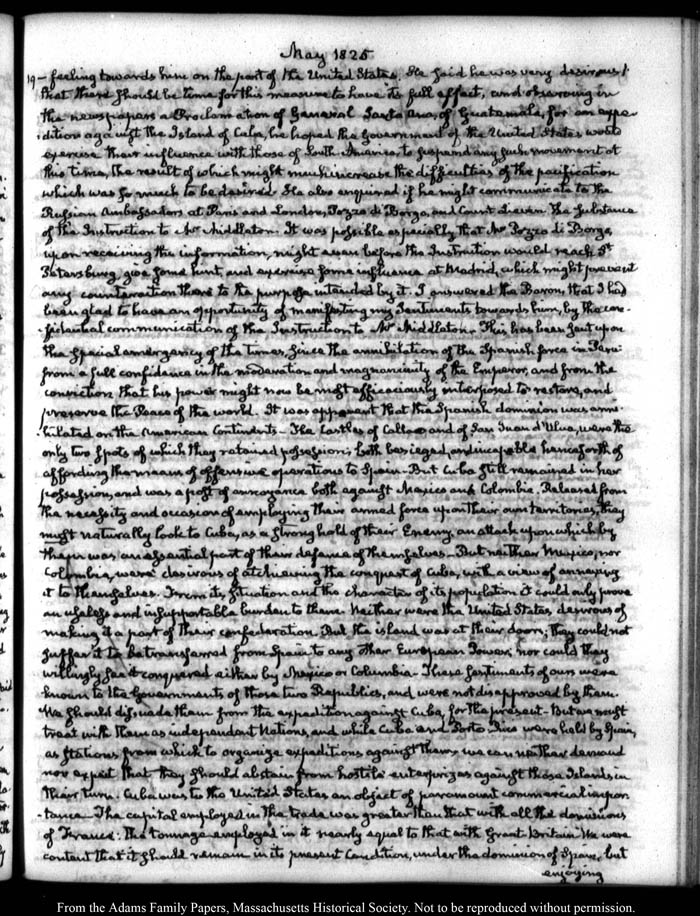 May 1825
19 - feeling towards him on the part of the United States. He said he was very desirous
that there should be time for this measure to have its full effect, and observing in
the newspapers a Proclamation of General Santa Ana, of Guatemala, for an expe-
-dition against the Island of Cuba, he hoped the Government of the United States would
exercise their influence with those of South America, to suspend any such movement at
this time, the result of which might much increase the difficulties of the pacification
which was so much to be desired. He also enquired if he might communicate to the
Russian Ambassadors at Paris and London, Pozzo di Borgo, and Count Lieven, the substance
of the Instruction to Mr Middleton. It was possible especially that Mr Pozzo di Borgo
upon receiving the information, might even before the Instruction would reach St
Petersburg, give some hint, and exercise some influence at Madrid, which might prevent
any counteraction there to the purpose intended by it. I answered the Baron, that I had
been glad to have an opportunity of manifesting my Sentiments towards him, by the con-
-fidential communication of the Instruction to Mr Middleton. This has been sent upon
the special emergency of the times, since the annihilation of the Spanish force in Peru
from a full confidence in the moderation and magnanimity of the Emperor, and from the
conviction that his power might now be most efficaciously interposed to restore, and
preserve the Peace of the world. It was apparent that the Spanish dominion was anni-
-hilated on the American Continents. The Castles of Callao and of San Juan d'Ulua, were the
only two spots of which they retained possession; both besieged, and incapable henceforth of
affording the means of offensive operations to Spain. But Cuba still remained in her
possession, and was a post of annoyance both against Mexico and Colombia. Released from
the necessity and occasion of employing their armed force upon their own territories, they
must naturally look to Cuba, as a strong hold of their Enemy, an attack upon which by
them was an essential part of their defence of themselves. But neither Mexico, nor
Colombia, were desirous of atchieving the conquest of Cuba, with a view of annexing
it to themselves. From its situation and the character of its population it could only prove
an useless and insupportable burden to them. Neither were the United States desirous of
making it a part of their confederation. But the island was at their doors; they could not
suffer it to be transferred from Spain to any other European Power; nor could they
willingly see it conquered either by Mexico or Columbia. These sentiments of ours were
known to the Governments of those two Republics, and were not disapproved by them.
We should dissuade them from the expedition against Cuba, for the present. But we must
treat with them as independent Nations, and while Cuba and Porto Rico were held by Spain,
as stations from which to organize expeditions against them, we can neither demand
nor expect that they should abstain from hostile enterprizes against those Islands in
their turn. Cuba was to the United States an object of paramount commercial impor-
-tance. The capital employed in the trade was greater than that with all the dominions
of France: the tonnage employed in it nearly equal to that with Great Britain. We were
content that it should remain in its present condition, under the dominion of Spain, but
enjoying
From the Adams Family Papers, Massachusetts Historical Society. Not to be reproduced without permission.